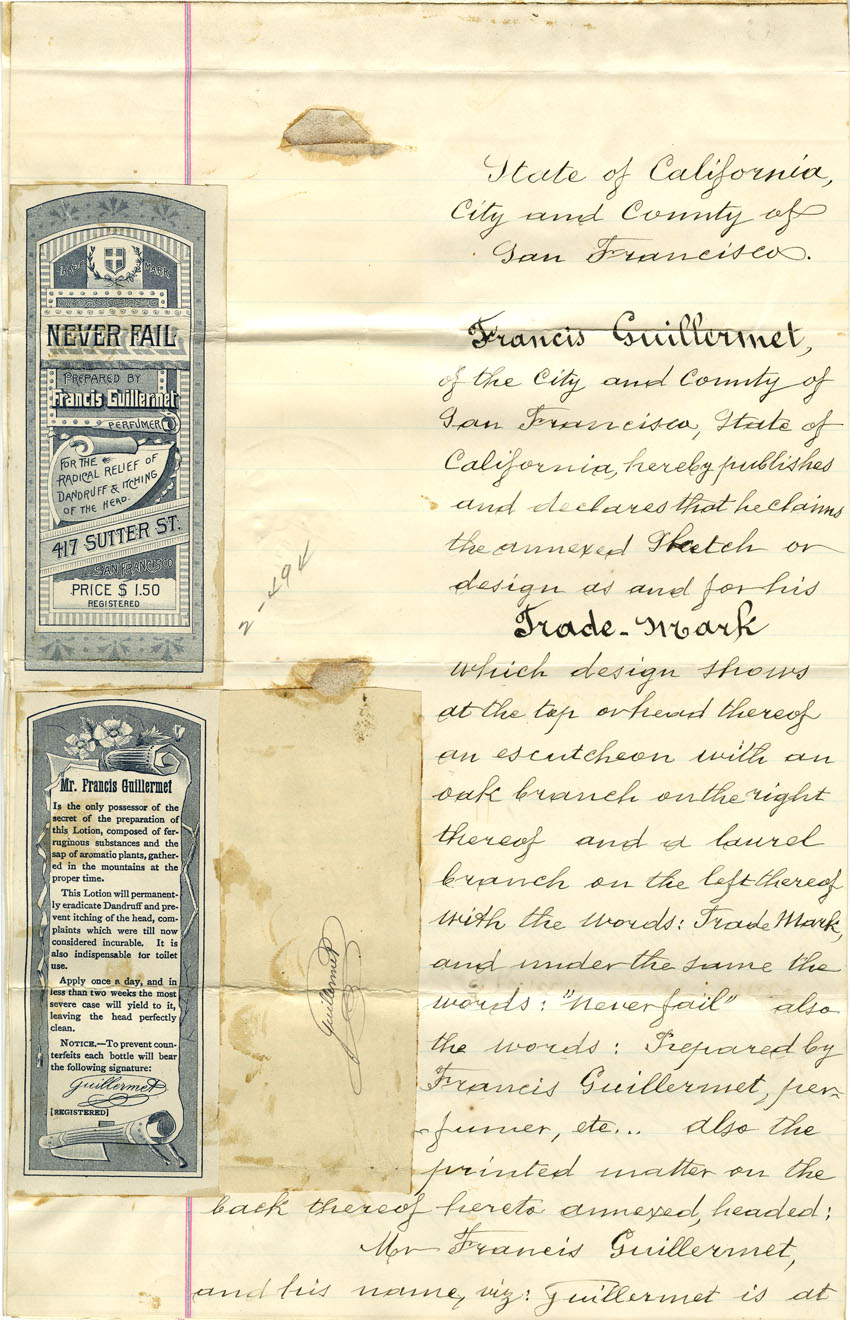 State of California,
City and County of
San Francisco.
Francis Guillermet,
of the City and County of
San Francisco, State of
California, hereby publishes
and declares that he claims
the annexed Sketch or
design as and for his
Trade-Mark
which design shows
at the top or head thereof
an escutcheon with an
oak branch on the right
thereof and a laurel
branch on the left thereof
with the words: Trade Mark,
and under the same the
words: "Never fail" also
the words: Prepared by
Francis Guillermet, per-
fumer, etc... also the
printed matter on the
back thereof hereto annexed, headed:
Mr Francis Guillermet,
and his name, viz: Guillermet is at
TRADE MARK
NEVER FAIL
PREPARED BY
Francis Guillermet
PERFUMER
FOR THE
RADICAL RELIEF OF
DANDRUFF & ITCHING
OF THE HEAD.
417 SUTTER ST.
SAN FRANCISCO
PRICE $ 1.50
REGISTERED
2-494
Mr. Francis Guillermet
Is the only possessor of the
secret of the preparation of
this Lotion, composed of fer-
ruginous substances and the
sap of aromatic plants, gather-
ed in the mountains at the
proper time.
This Lotion will permanent-
ly eradicate Dandruff and pre-
vent itching of the head, com-
plaints which were till now
considered incurable. It is
also indispensable for toilet
use.
Apply once a day, and in
less than two weeks the most
severe case will yield to it,
leaving the head perfectly
clean.
NOTICE.—To prevent coun-
terfeits each bottle will bear
the following signature:
Guillermet
[REGISTERED]
Guillermet